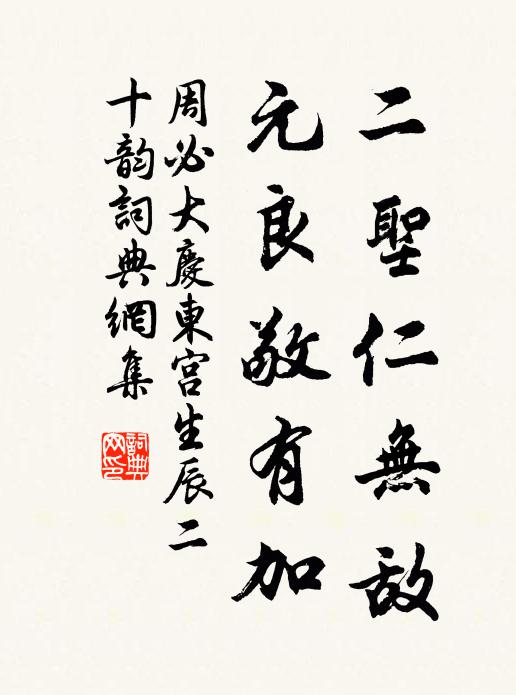 二聖仁無敵
元良敬有加
周必大慶東宮生辰二
十韵詞典網集
詞典網印